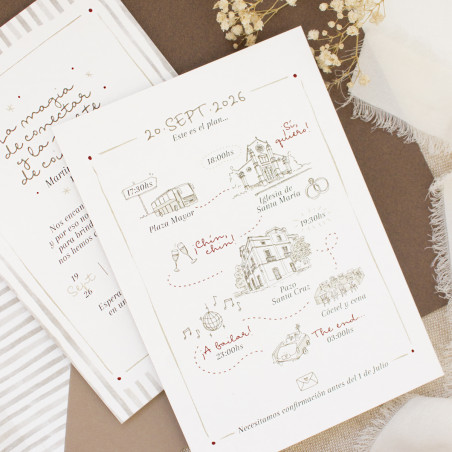 20·SEPT·2026
Este es el plan...
17:30hs
Plaza Mayor
18:00hs
Sí,
quiero!
Iglesia de
Santa María
¡Chin,
chin!
19:30hs
Pazo
Santa Cruz
Cóctel y cena
¡A bailar!
23:00hs
The end...
03:00hs
Necesitamos confirmación antes del 1 de Julio
magia
de conectar
y la
de co
Martín
Nos encan
y por eso
para brind
nos hemos
19
Sept
26
Espera
en un